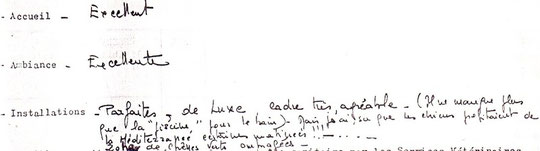 - Accueil - Excellent
- Ambiance - Excellente
- Installations - Parfaites, de Luxe cadre très agréable - (Il ne manque plus
que la "piscine" pour le bain) - Mais j'ai su que les chiens profitaient de
la Méditerranée certaines matinées !!! - . - . -
de chênes verts ombragées -
les Services Vétérinaires